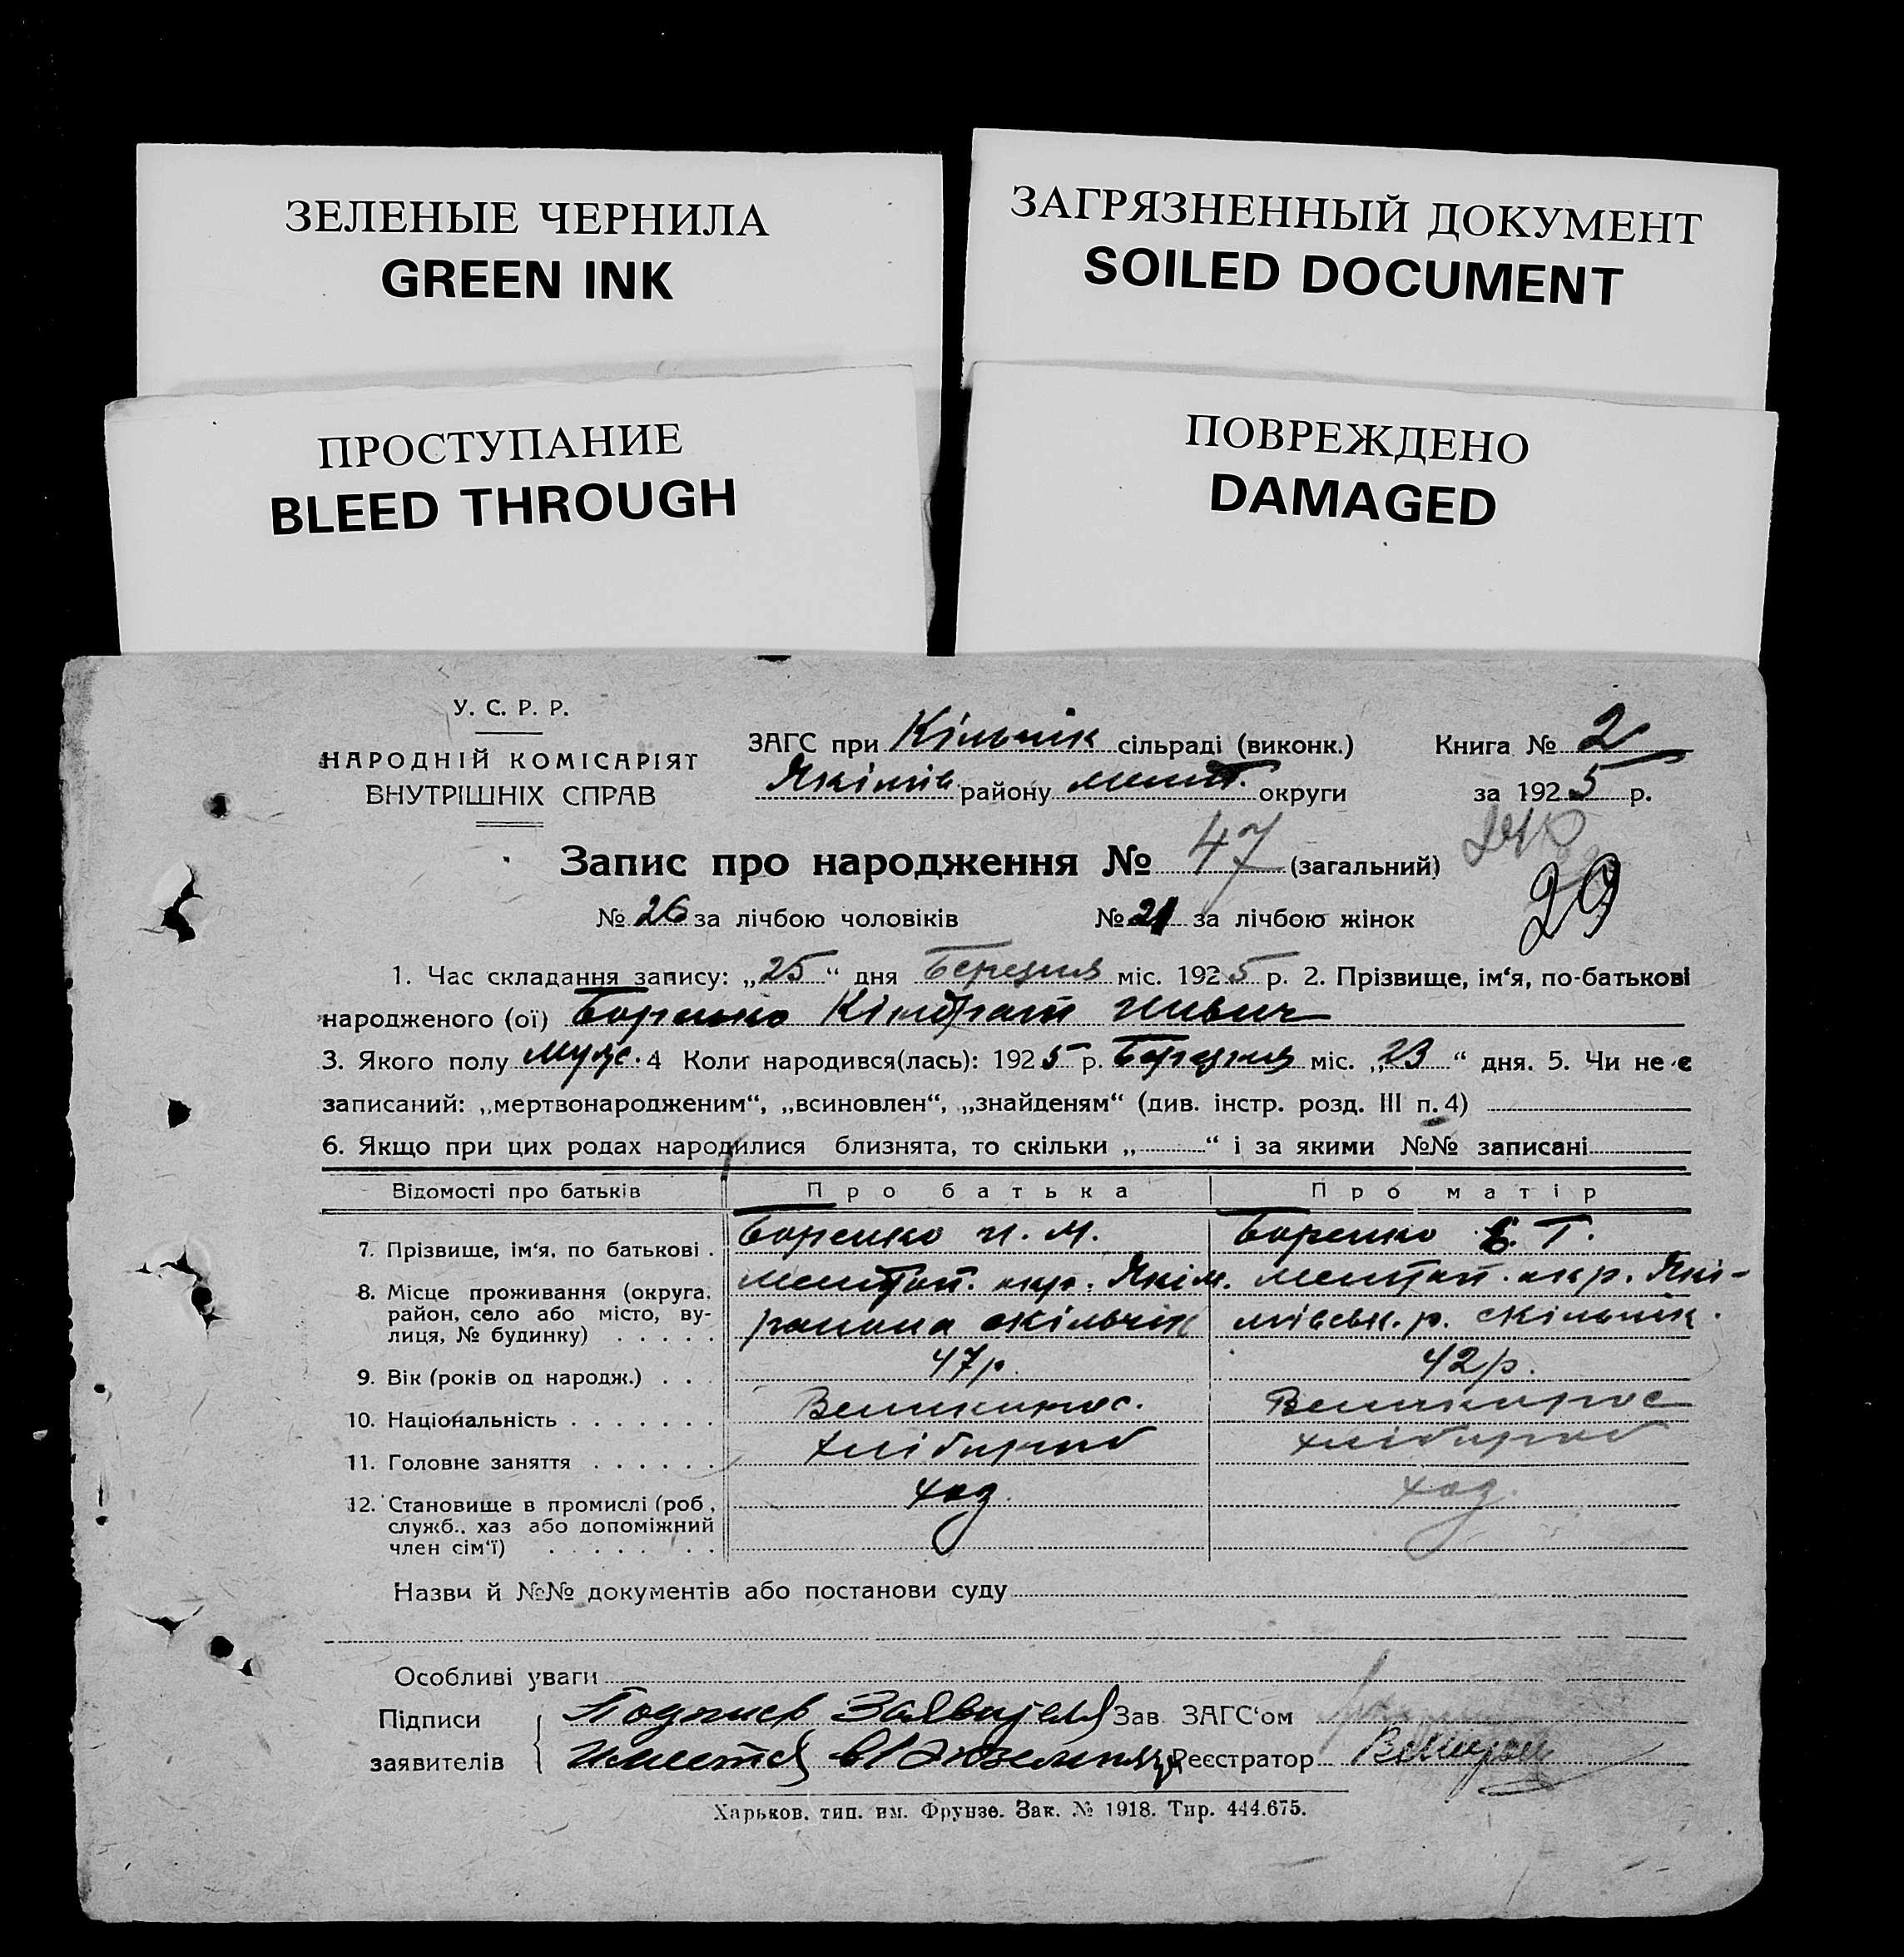 ЗЕЛЕНЫЕ ЧЕРНИЛА
GREEN INK
ЗАГРЯЗНЕННЫЙ ДОКУМЕНТ
SOILED DOCUMENT
ПРОСТУПАНИЕ
BLEED THROUGH
ПОВРЕЖДЕНО
DAMAGED
У. С. Р. Р.
НАРОДНІЙ КОМІСАРІЯТ
ВНУТРІШНІХ СПРАВ
ЗАГС при сільраді (виконк.) Книга № 2
Якімів району мелит. округи за 1925 р.
Запис про народження № 47 (загальний)
29
№ 26 за лічбою чоловіків № 21 за лічбою жінок
1. Час складання запису: „25“ дня Березня міс. 1925 р. 2. Прізвище, ім‘я, по-батькові
народженого (ої) Боренко Кіндрат
3. Якого полу муж. 4 Коли народився(лась): 1925 р. Березня міс. „23“ дня. 5. Чи не є
записаний: „мертвонародженим“, „всиновлен“, „знайденям“ (див. інстр. розд. III п. 4)
6. Якщо при цих родах народилися близнята, то скільки „ “ і за якими №№ записані
Відомості про батьків Про батька Про матір
7. Прізвище, ім‘я, по батькові . Боренко И. М. Боренко Є. Т.
8. Місце проживання (округа, район, село або місто, вулиця, № будинку) . . . . . Мелітоп. окр. Якім. района Мелітоп. окр. Якімівськ. р.
9. Вік (років од народж.) . . . 47 р. 42 р.
10. Національність . . . . . . . Великорос. Великорос
11. Головне заняття . . . . . . хлібороб хлібороб
12. Становище в промислі (роб, служб., хаз або допоміжний член сім‘ї) . . . . . . . хаз. хаз.
Назви й №№ документів або постанови суду
Особливі уваги
Підписи Подпись Заявителя Зав ЗАГС‘ом
заявителів имеется Реєстратор
Харьков. тип. им. Фрунзе. Зак. № 1918. Тир. 444.675.